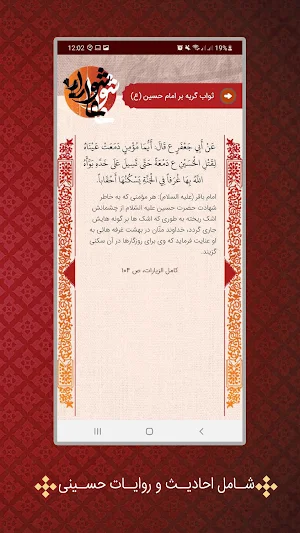 12:02
19%
ثواب گریه بر امام حسین (ع)
عَنْ أَبِي جَعْفَرٍ ع قَالَ: أَيُّمَا مُؤْمِنٍ دَمَعَتْ عَيْنَاهُ
لِقَتْلِ الْحُسَيْنِ ع دَمْعَةً حَتَّى تَسِيلَ عَلَى خَدِّهِ بَوَّأَهُ
اللَّهُ بِهَا غُرَفاً فِي الْجَنَّةِ يَسْكُنُهَا أَحْقَاباً.
امام باقر (علیه السلام): هر مؤمنی که به خاطر
شهادت حضرت حسین علیه السّلام از چشمانش
اشک ریخته به طوری که اشک ها بر گونه هایش
جاری گردد، خداوند منّان در بهشت غرفه هائی به
او عنایت فرماید که وی برای روزگارها در آن سکنی
گزیند.
کامل الزیارات، ص ۱۰۴
شامل احادیث و روایات حسینی